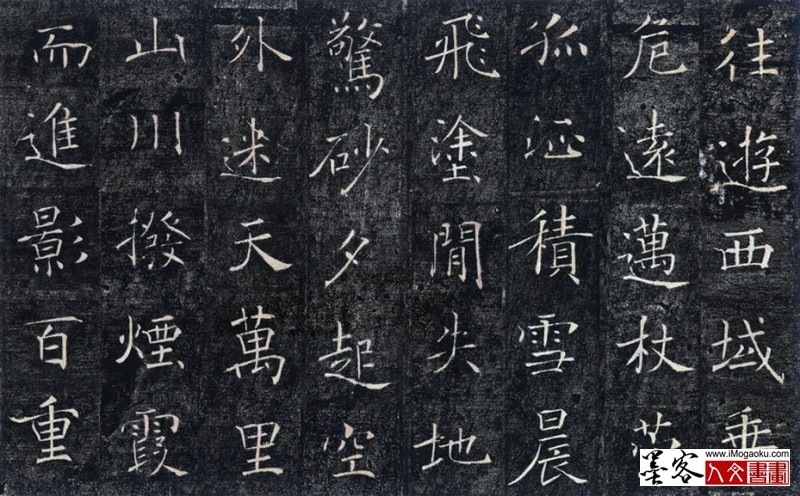 往遊西域乗
危遠邁杖
孤征積雪晨
飛塗閒失地
驚砂夕起空
外迷天萬里
山川撥煙霞
而進影百重
墨客
www.iMogaoku.com
人文書畫